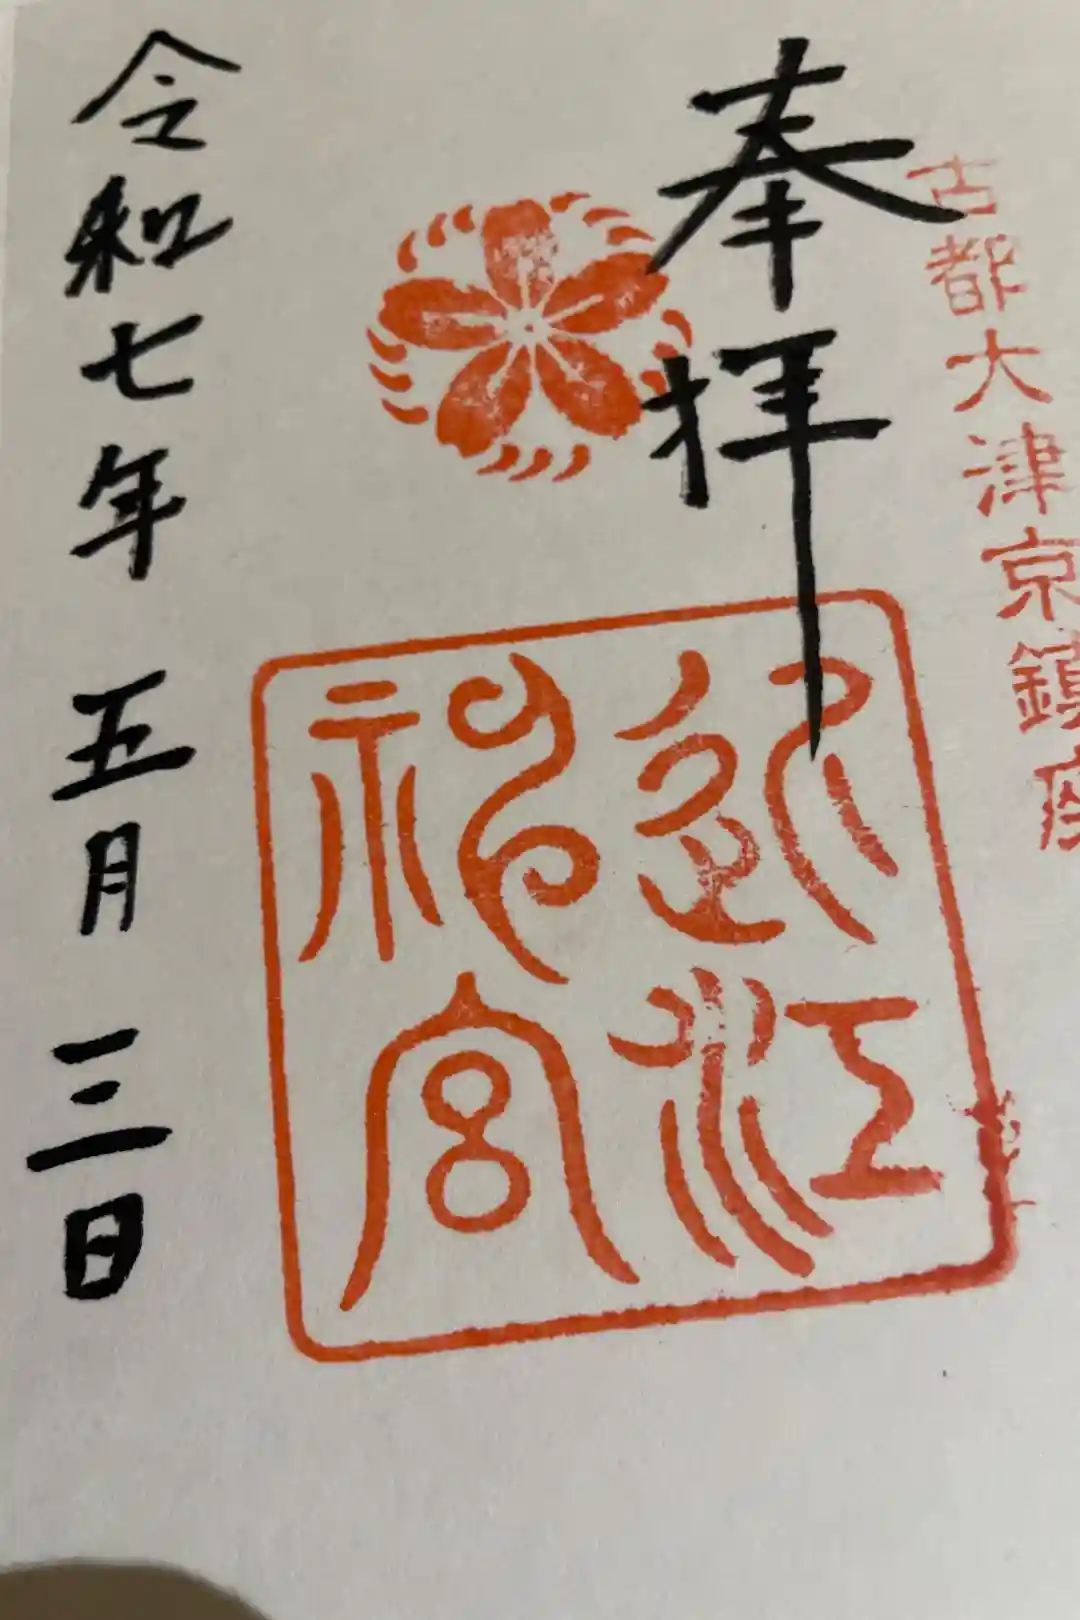 古都大津京鎮座
奉拝
近江
神宮
令和七年 五月 三日